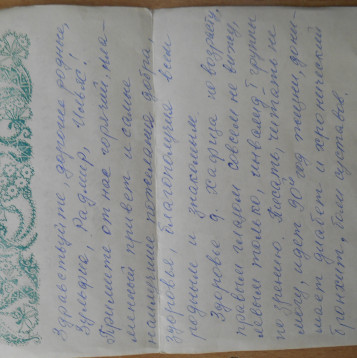 Здравствуйте, дорогие родные,
Зульфия, Радмир, Инна!
Примите от нас горячий, пла-
менный привет и самые
наилучшие пожелания добра,
здоровья, благополучия всем
родным и знакомым.
Здоровье д. хафиза по возрасту,
правым глазом совсем не вижу,
левым только, инвалид I группы
по зрению. Писать, читать не
могу, идет 90й год жизни, дони-
мает диабет и хронический
бронхит, боли суставов.